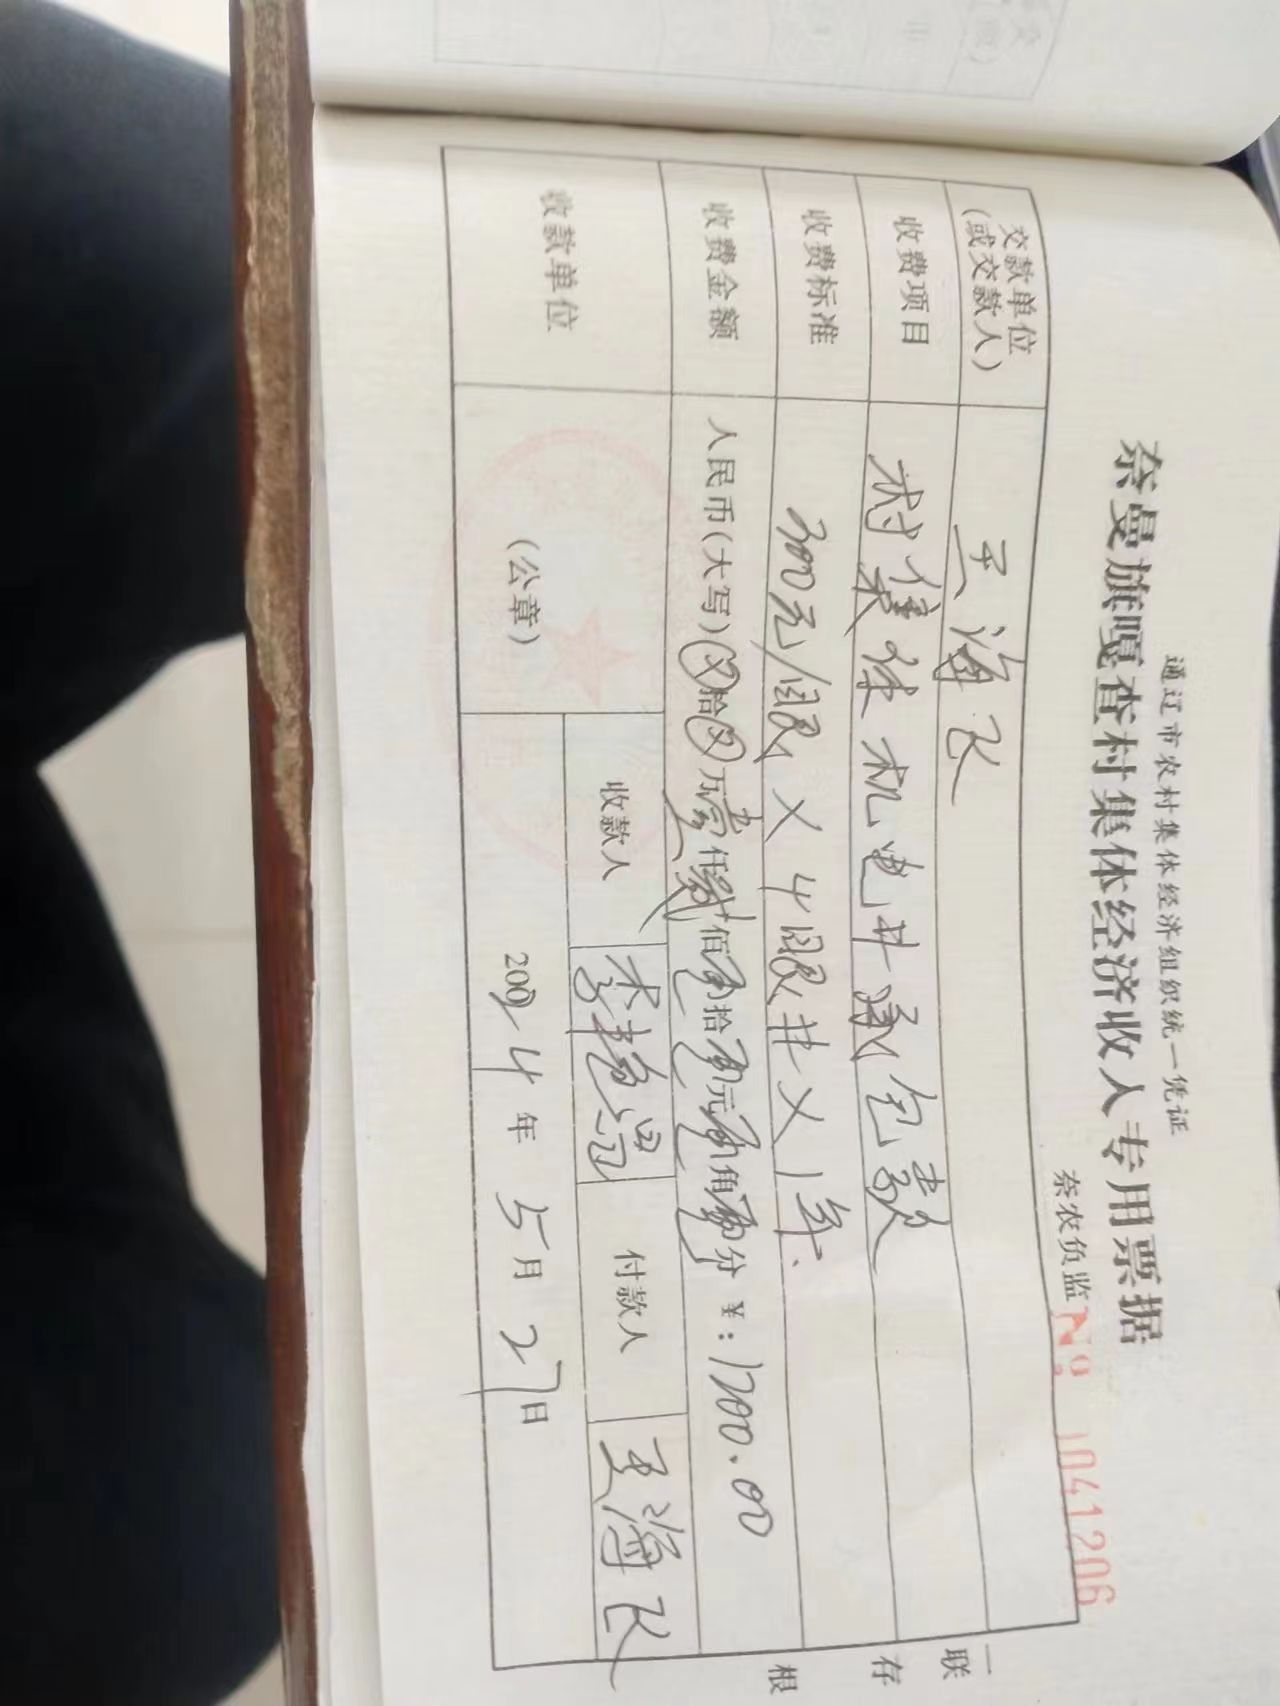 通辽市农村集体经济组织统一凭证
奈曼旗嘎查村集体经济收入专用票据
奈农负监 № 1041206
交款单位（或交款人） 王海飞
收费项目 村集体机电井承包款
收费标准 300元/眼×4眼井×1年.
收费金额 人民币(大写)⊗拾⊗万壹仟贰佰零拾零元零角零分 ￥:1200.00
收款单位 (公章) 收款人 李艳 付款人 王海飞
2024年5月27日
一联 存根